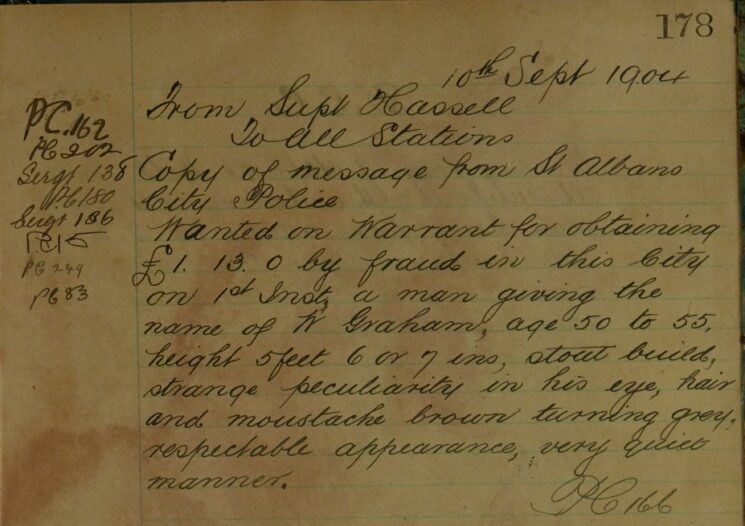 178
10th Sept 1904
From Supt Hassell
To all Stations
Copy of message from St Albans
City Police
Wanted on Warrant for obtaining
£1. 13. 0 by fraud in this City
on 1st Inst, a man giving the
name of W Graham, age 50 to 55,
height 5 feet 6 or 7 ins, stout build,
strange peculiarity in his eye, hair
and moustache brown turning grey,
respectable appearance, very quiet
manner.
PC 166
PC.162
PC 202
Sergt 138
PC 180
Sergt 186
PC 15
PC 249
PC 83